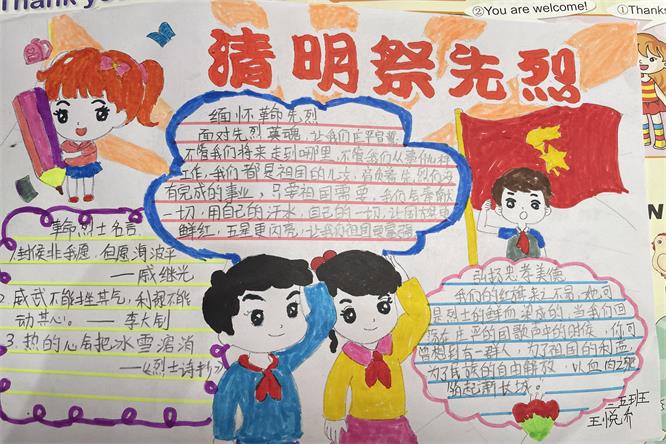 Thank you
②You are welcome!
①Thanks
清明祭先烈
缅怀革命先烈
面对先烈英魂，让我们庄严宣誓
不管我们将来走到哪里，不管我们从事何种
工作，我们都是祖国的儿女，肩负着先烈们没
有完成的事业，只要祖国需要，我们会奉献
一切，用自己的汗水，自己的一切，让国旗更
鲜红，五星更闪亮，让我们祖国更富强
革命烈士名言
1.封侯非我愿，但愿海波平
——戚继光
2、威武不能挫其气，利禄不能
动其心。——李大钊
3.热的心会把冰雪溶消
——《烈士诗抄》
弘扬忠孝美德
我们的红旗来之不易，她可
是烈士的鲜血染成的，当我们回
荡在庄严的国歌声中的时候，你可
曾想到有一群人，为了祖国的利益，
为了民族的自由解放，以血肉之躯
筑起新长城。
二五班
王悦